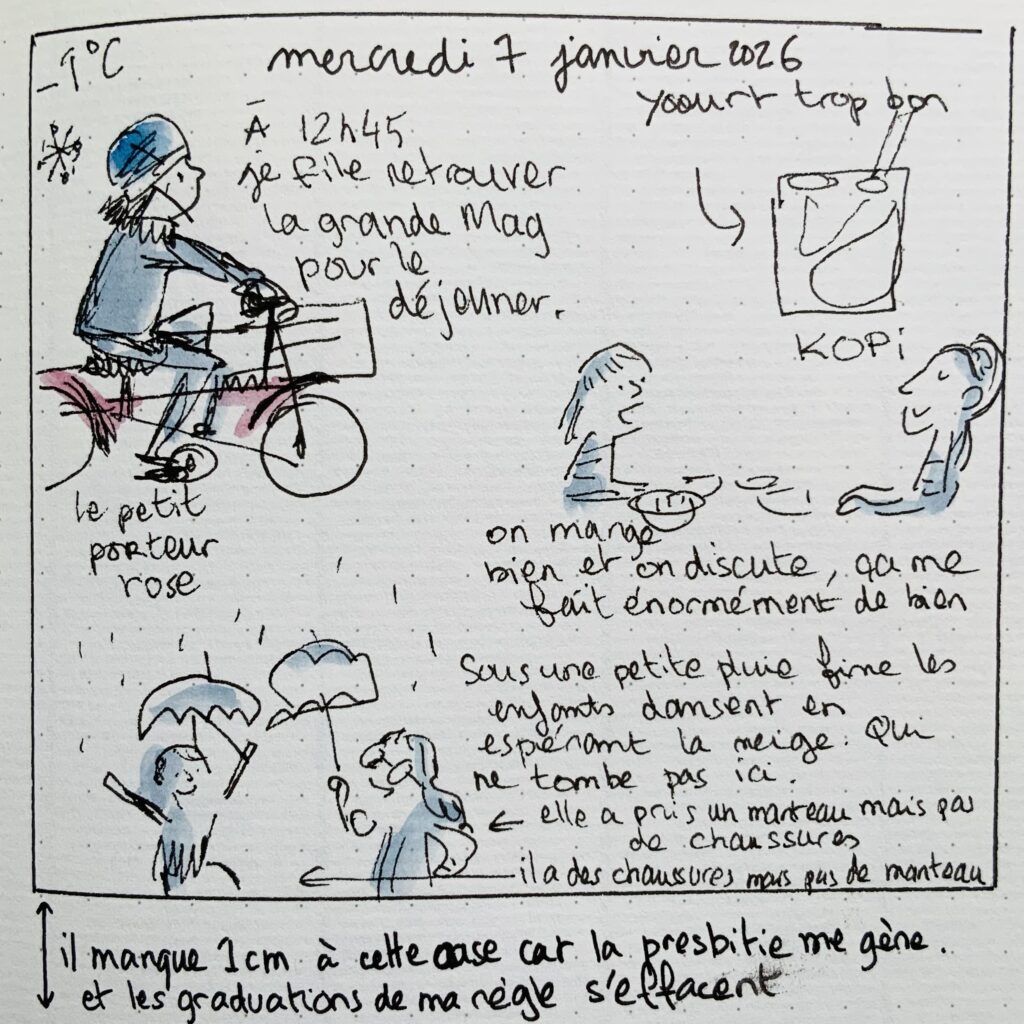 -1°C
mercredi 7 janvier 2026
À 12h45
je file retrouver
la grande Mag
pour le
déjeuner.
Yoourt trop bon
KOPi
le petit
porteur
rose
on mange
bien et on discute, ça me
fait énormément de bien
Sous une petite pluie fine les
enfants dansent en
espérant la neige. Qui
ne tombe pas ici.
← elle a pris un manteau mais pas
de chaussures
il a des chaussures mais pas de manteau
il manque 1cm à cette case car la presbitie me gène.
et les graduations de ma règle s'effacent